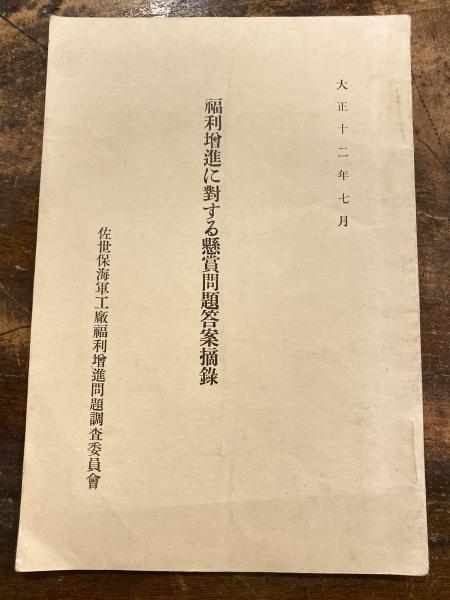 大正十二年七月
福利增進に對する懸賞問題答案摘錄
佐世保海軍工廠福利增進問題調査委員會